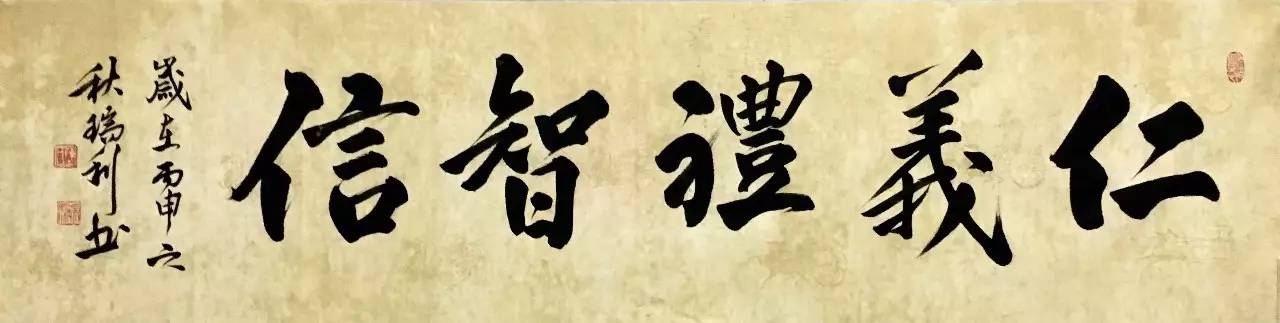 仁義禮智信
歲在丙申之
秋瑞利书